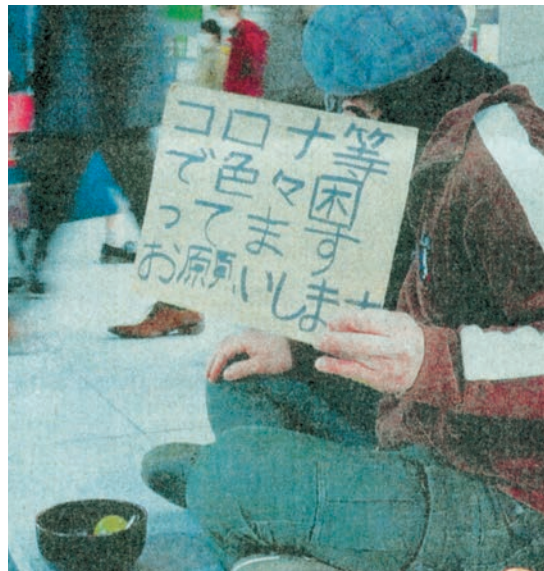 コロナ等
で色々困
ってます
お願いします